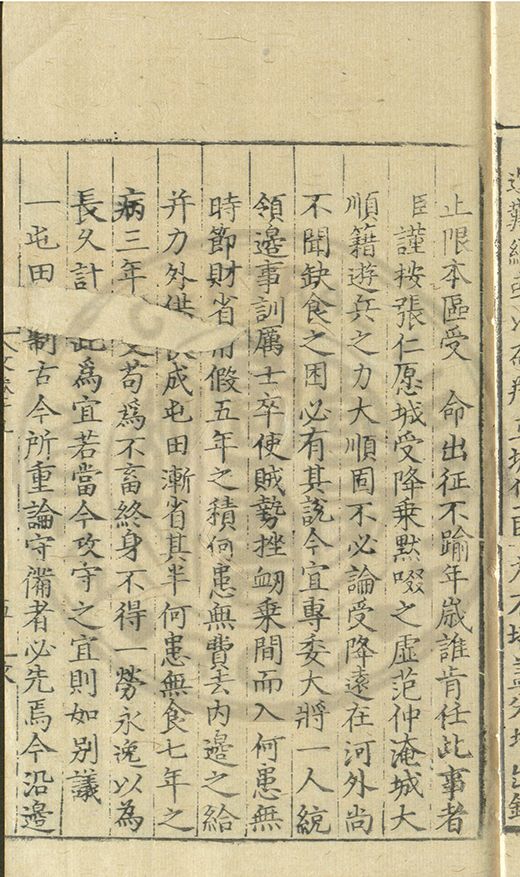 止限本區受　命出征不踰年歲誰肯任此事者
臣謹按張仁愿城受降乗默啜之虚范仲淹城大
順籍遊兵之力大順固不必論受降遠在河外尚
不聞缺食之困必有其說今宜專委大將一人統
領邉事訓厲士卒使賊勢挫衂乗間而入何患無
時節財省用假五年之積何患無費去内邉之給
并力外供成屯田漸省其半何患無食七年之
病三年之艾苟爲不畜終身不得一勞永逸以為
長久計此為宜若當今攻守之宜則如别議
一屯田制古今所重論守備者必先焉今沿邉